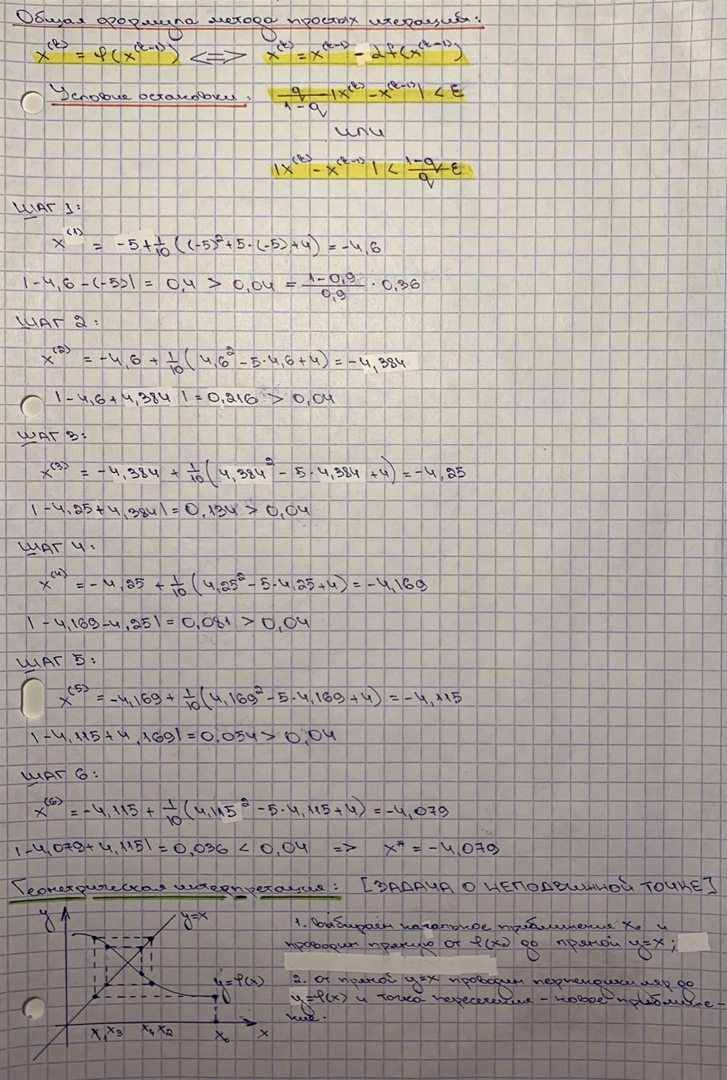 Общая формула метода простых итераций:
x^(k) = φ(x^(k-1)) <=> x^(k) = x^(k-1) - αf(x^(k-1))
Условие остановки: q/(1-q) |x^(k) - x^(k-1)| < ε
или
|x^(k) - x^(k-1)| < (1-q)/q ε
ШАГ 1:
x^(1) = -5 + 1/10 ((-5)² + 5·(-5) + 4) = -4,6
|-4,6 - (-5)| = 0,4 > 0,04 = (1-0,9)/0,9 · 0,36
ШАГ 2:
x^(2) = -4,6 + 1/10 (4,6² - 5·4,6 + 4) = -4,384
|-4,6 + 4,384| = 0,216 > 0,04
ШАГ 3:
x^(3) = -4,384 + 1/10 (4,384² - 5·4,384 + 4) = -4,25
|-4,25 + 4,384| = 0,134 > 0,04
ШАГ 4:
x^(4) = -4,25 + 1/10 (4,25² - 5·4,25 + 4) = -4,169
|-4,169 - 4,25| = 0,081 > 0,04
ШАГ 5:
x^(5) = -4,169 + 1/10 (4,169² - 5·4,169 + 4) = -4,115
|-4,115 + 4,169| = 0,054 > 0,04
ШАГ 6:
x^(6) = -4,115 + 1/10 (4,115² - 5·4,115 + 4) = -4,079
|-4,079 + 4,115| = 0,036 < 0,04 => x* = -4,079
Геометрическая интерпретация: [ЗАДАЧА О НЕПОДВИЖНОЙ ТОЧКЕ]
y
y=x
y=φ(x)
x₁ x₃ x₄ x₂ x₀ x
1. выбираем начальное приближение x₀ и
проводим прямую от φ(x₀) до прямой y=x;
2. от прямой y=x проводим перпендикуляр до
y=φ(x) и точка пересечения - новое приближе-
ние.